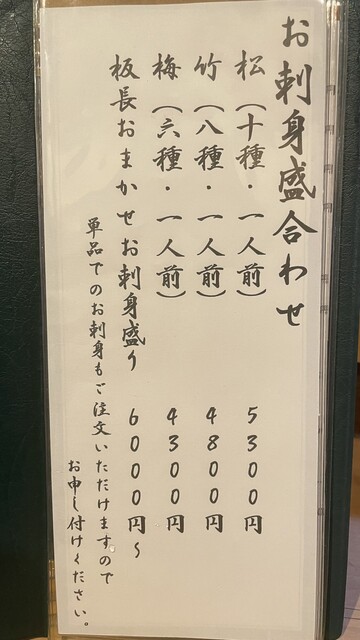 お刺身盛合わせ
松（十種・一人前） 5300円
竹（八種・一人前） 4800円
梅（六種・一人前） 4300円
板長おまかせお刺身盛り 6000円～
単品でのお刺身もご注文いただけますので
お申し付けください。